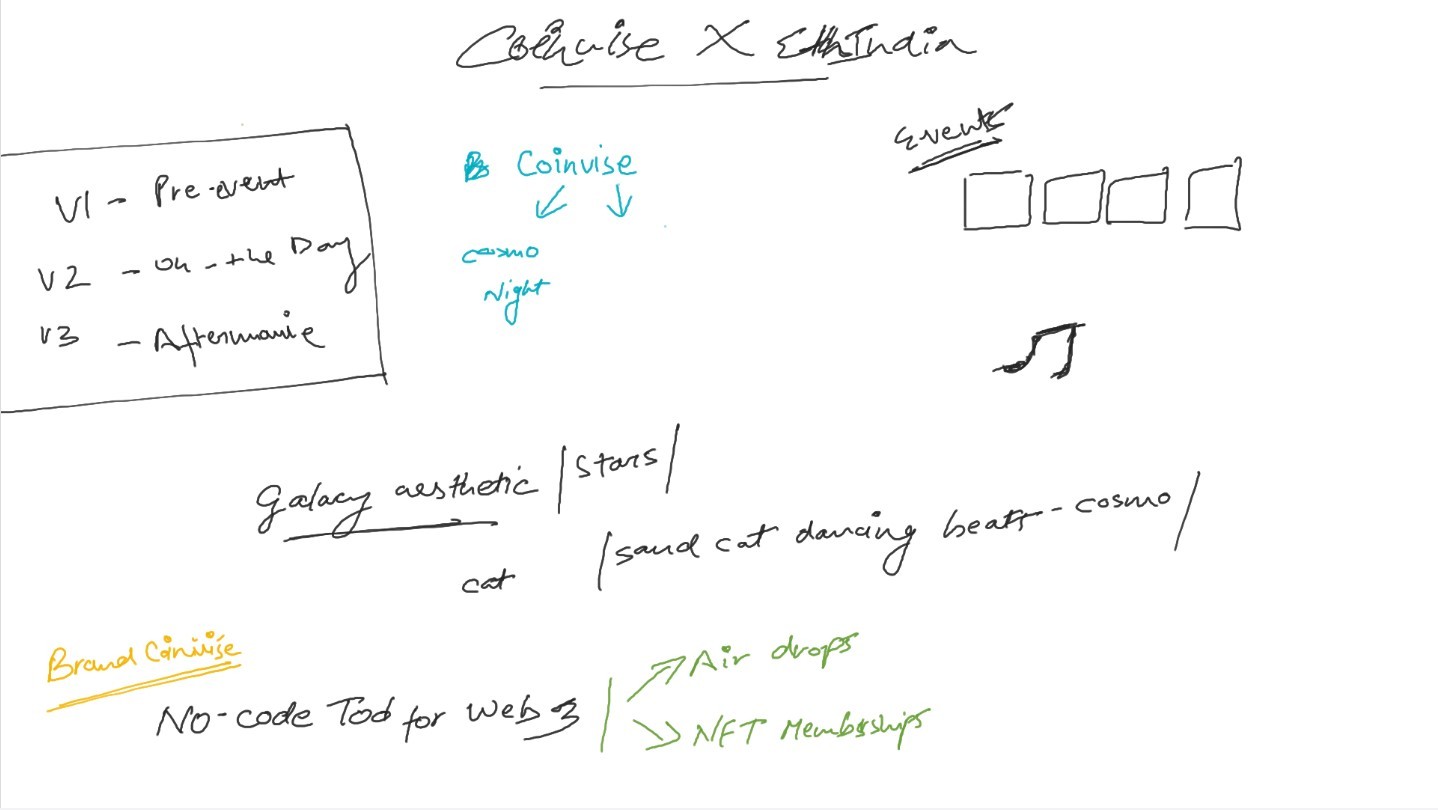 Coinvise X EthIndia
Events
V1 - Pre-event
V2 - On-the Day
V3 - Aftermovie
Coinvise
cosmo
Night
Galaxy aesthetic / stars /
cat / sand cat dancing beats - cosmo /
Brand Coinvise
No-code Tool for Web 3
Air drops
NFT Memberships